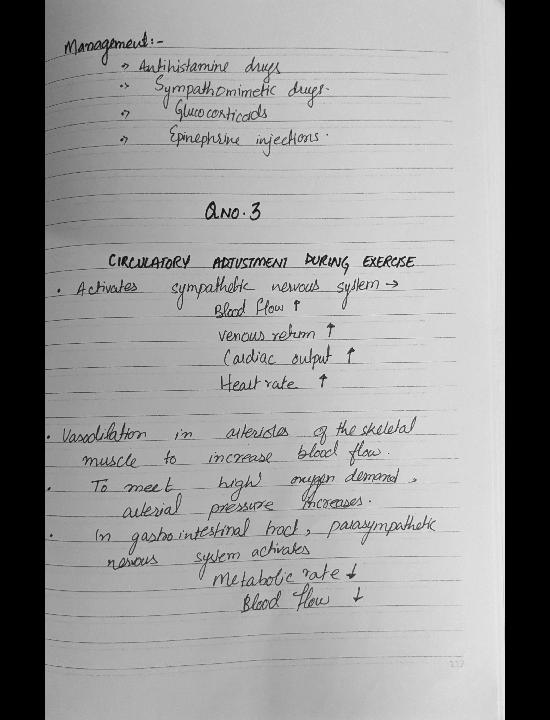 Management:-
→ Antihistamine drugs
→ Sympathomimetic drugs.
→ Glucocorticoids
→ Epinephrine injections.
QNO. 3
CIRCULATORY ADJUSTMENT DURING EXERCISE
• Activates sympathetic nervous system →
Blood flow ↑
Venous return ↑
Cardiac output ↑
Heart rate ↑
• Vasodilation in arterioles of the skeletal
muscle to increase blood flow.
• To meet high oxygen demand,
arterial pressure increases.
• In gastrointestinal tract, parasympathetic
nervous system activates
Metabolic rate ↓
Blood flow ↓